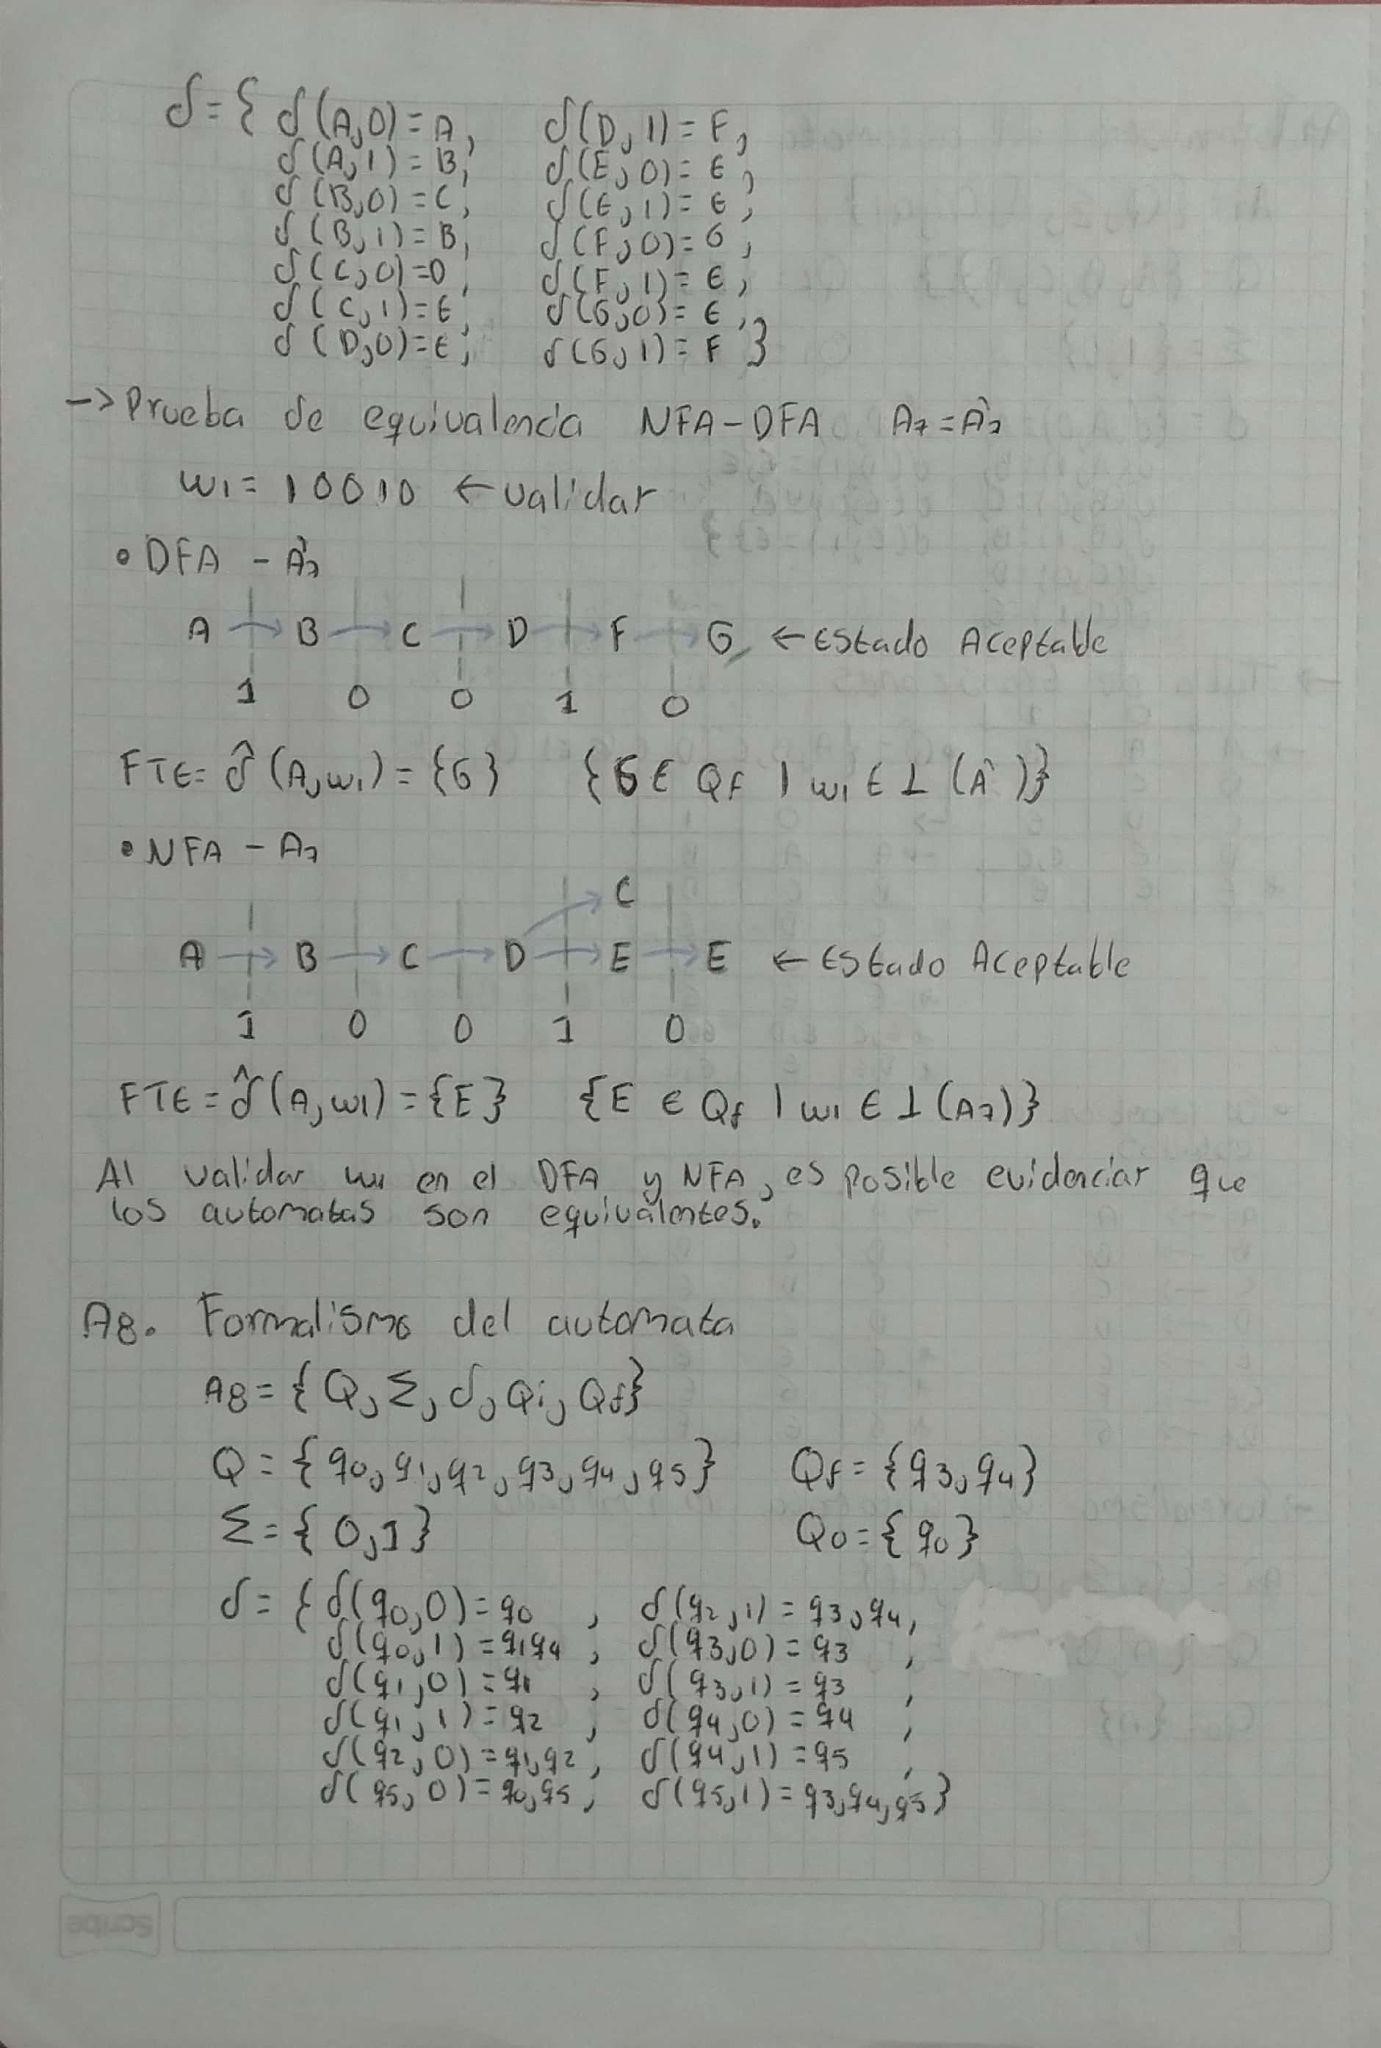 δ = { δ(A,0) = A, δ(D,1) = F,
δ(A,1) = B, δ(E,0) = E,
δ(B,0) = C, δ(E,1) = E,
δ(B,1) = B, δ(F,0) = G,
δ(C,0) = D, δ(F,1) = E,
δ(C,1) = E, δ(G,0) = E,
δ(D,0) = E, δ(G,1) = F }
-> Prueba de equivalencia NFA - DFA A7 = Â7
w1 = 10010 ← validar
• DFA - Â7
A → B → C → D → F → G ← Estado Aceptable
1 0 0 1 0
FTE = δ̂ (A,w1) = {G} {G ∈ Qf | w1 ∈ L (Â)}
• NFA - A7
C
A → B → C → D → E → E ← Estado Aceptable
1 0 0 1 0
FTE = δ̂ (A,w1) = {E} {E ∈ Qf | w1 ∈ L (A7)}
Al validar w1 en el DFA y NFA, es posible evidenciar que
los automatas son equivalentes.
A8. Formalismo del automata
A8 = { Q, Σ, δ, Qi, Qf}
Q = { q0, q1, q2, q3, q4, q5} Qf = {q3, q4}
Σ = { 0,1} Q0 = { q0}
δ = { δ(q0,0) = q0 , δ(q2,1) = q3,q4,
δ(q0,1) = q1q4 , δ(q3,0) = q3 ,
δ(q1,0) = q1 , δ(q3,1) = q3 ,
δ(q1,1) = q2 , δ(q4,0) = q4 ,
δ(q2,0) = q1,q2, δ(q4,1) = q5 ,
δ(q5,0) = q0,q5, δ(q5,1) = q3,q4,q5}
Scribe